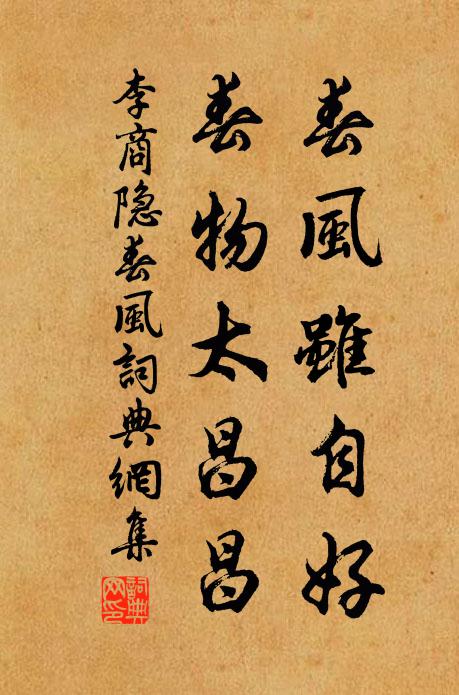 春風雖自好
春物太昌昌
李商隐春風詞典網集
詞典网印